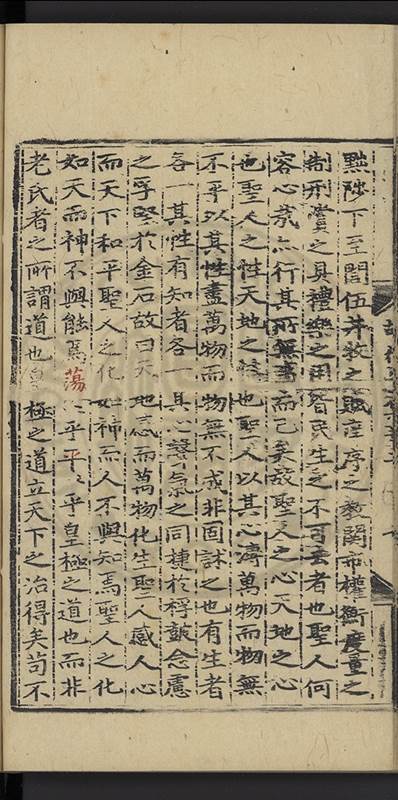 黜陟下至閭伍井牧之賦庠序之教關市權衡度量之
制刑賞之具禮樂之用皆民生之不可去者也聖人何
容心焉亦行其所無事而已矣故聖人之心天地之心
也聖人之性天地之性也聖人以其心濤萬物而物無
不平以其性盡萬物而物無不成非固訹之也有生者
各一其性有知者各一其心聲氣之同捷於桴鼓念慮
之孚堅於金石故曰天地感而萬物化生聖人感人心
而天下和平聖人之化如神而人不與知焉聖人之化
如天而神不與能焉蕩々乎平々乎皇極之道也而非
老氏者之所謂道也皇極之道立天下之治得矣苟不